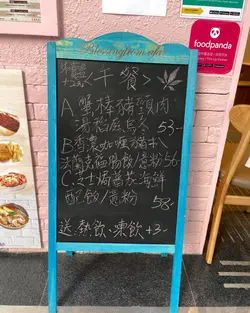 Blessing from sky
foodpanda
<午餐>
A.蟹棒豬頸肉
湯稻庭烏冬 53-
B.香濃咖喱豬扒
法蘭克腸飯/意粉 56-
C.芝士焗蕃茄海鮮
配飯/意粉 58-
送:熱飲、凍飲+3-